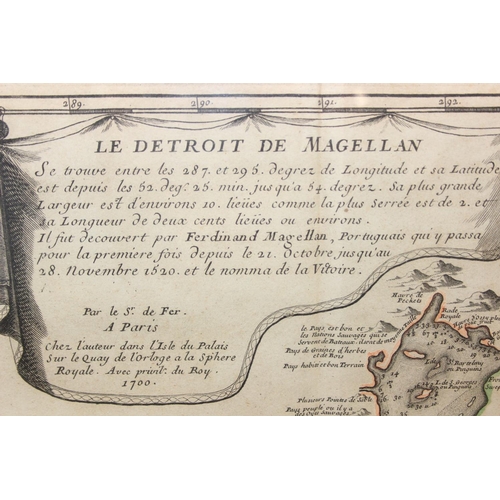 289. 290. 291. 292.
LE DETROIT DE MAGELLAN
Se trouve entre les 287. et 295. degrez de Longitude et sa Latitude
est depuis les 52. deg. 25. min. jusqu'a 54. degrez. Sa plus grande
Largeur est d'environs 10. lieües comme la plus Serrée est de 2. et
sa Longueur de deux cents lieües ou environs.
Il fut decouvert par Ferdinand Magellan, Portuguais qui y passa
pour la premiere fois depuis le 21. Octobre, jusqu'au
28. Novembre 1520. et le nomma de la Victoire.
Par le Sr. de Fer.
A Paris
Chez l'auteur dans l'Isle du Palais
Sur le Quay de l'Orloge a la Sphere
Royale. Avec privil. du Roy.
1700.
Havre de
Peckets
Rade
Royale
le Pays est bon et
les Nations Sauvages qui se
Pays de Graines d'herbes
et de Bois
Pays habité bon Terrain
I. St. Bartelemy
ou Pinguins
I. de St. Georges
ou Pinguins
Plusieurs Pointes de Sable
Pays peuplé ou il y a
des Oyes Sauvages